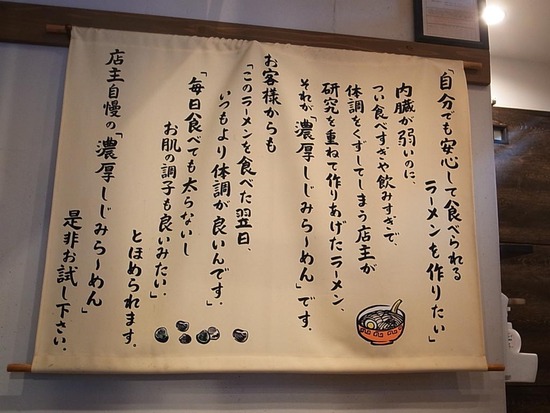 「自分でも安心して食べられる
ラーメンを作りたい」
内臓が弱いのに、
つい食べすぎや飲みすぎで、
体調をくずしてしまう店主が
研究を重ねて作りあげたラーメン、
それが「濃厚しじみらーめん」です。
お客様からも
「このラーメンを食べた翌日、
いつもより体調が良いんです。」
「毎日食べても太らないし
お肌の調子も良いみたい。」
とほめられます。
店主自慢の「濃厚しじみらーめん」
是非お試し下さい。